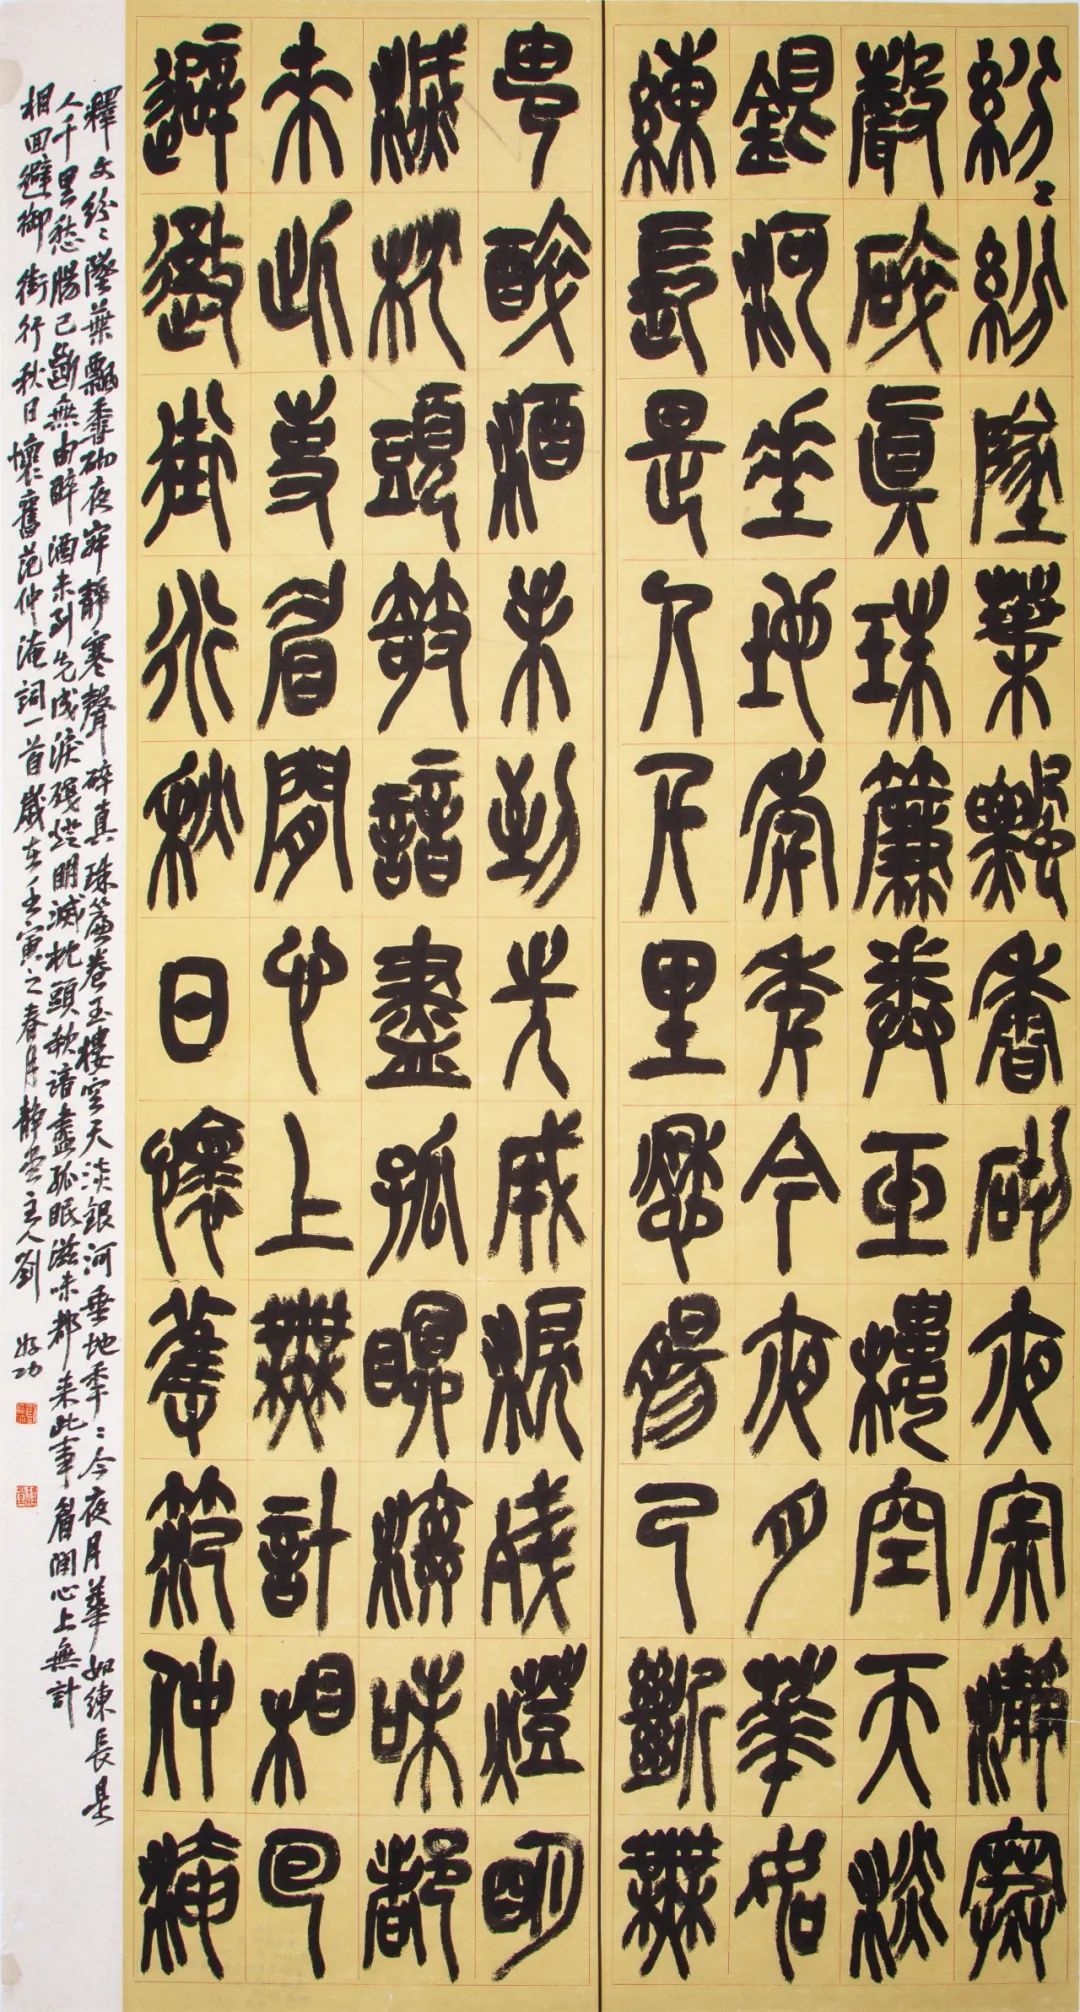 紛紛墜葉飄香砌夜寂靜寒
聲碎真珠簾卷玉樓空天淡
銀河垂地年年今夜月華如
練長是人千里愁腸已斷無
由酸酒未到先成淚殘燈明
滅枕頭欹諳盡孤眠滋味都
來此事眉間心上無計相回
避御街行秋日懷舊范仲淹
釋文紛〻墜葉飄香砌夜寂靜寒聲碎真珠簾卷玉樓空天淡銀河垂地年〻今夜月華如練長是
人千里愁腸已斷無由醉酒未到先成淚殘燈明滅枕頭欹諳盡孤眠滋味都來此事眉間心上無計
相回避御街行秋日懷舊范仲淹詞一首歲在壬寅之春月靜堂主人劉